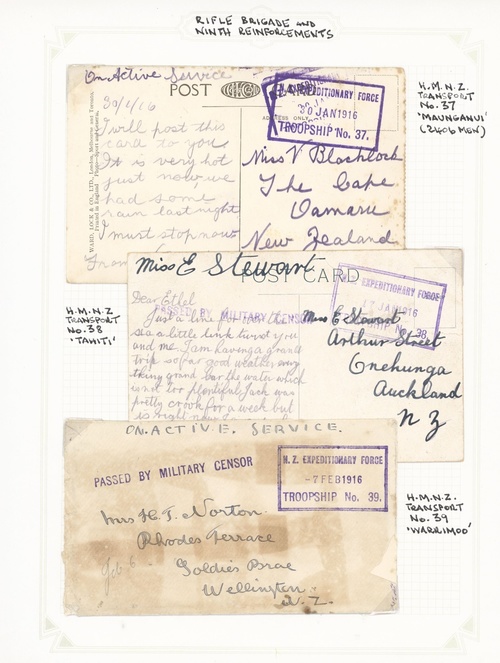 RIFLE BRIGADE AND
NINTH REINFORCEMENTS
On Active Service
POST
30/1/16
I will post this
card to you
It is very hot
just now, we
had some
rain last night
I must stop now
From
WARD, LOCK & CO., LTD., London, Melbourne and Toronto.
EXPEDITIONARY FORCE
30 JAN 1916
TROOPSHIP No. 37.
ADDRESS ONLY
Miss V Blacklock
The Cape
Oamaru
New Zealand
H.M.N.Z
TRANSPORT
No. 37
'MAUNGANUI'
(2406 MEN)
Miss E Stewart
POST CARD
PASSED BY MILITARY CENSOR
Dear Ethel
Just a line
a little link twixt you
and me. I am having a grand
trip so far good weather every
thing grand bar the water which
is not too plentiful. Jack was
pretty crook for a week but
is right now
EXPEDITIONARY FORCE
17 JAN 1916
SHIP No. 38.
Miss E Stewart
Arthur Street
Onehunga
Auckland
N Z
H.M.N.Z
TRANSPORT
No. 38
'TAHITI'
ON. ACTIVE. SERVICE.
PASSED BY MILITARY CENSOR
N. Z. EXPEDITIONARY FORCE
-7 FEB 1916
TROOPSHIP No. 39.
Mrs H. T. Norton
Rhodes Terrace
Goldies Brae
Wellington
N. Z.
Feb 6
H.M.N.Z.
TRANSPORT
No. 39
'WARRIMOO'